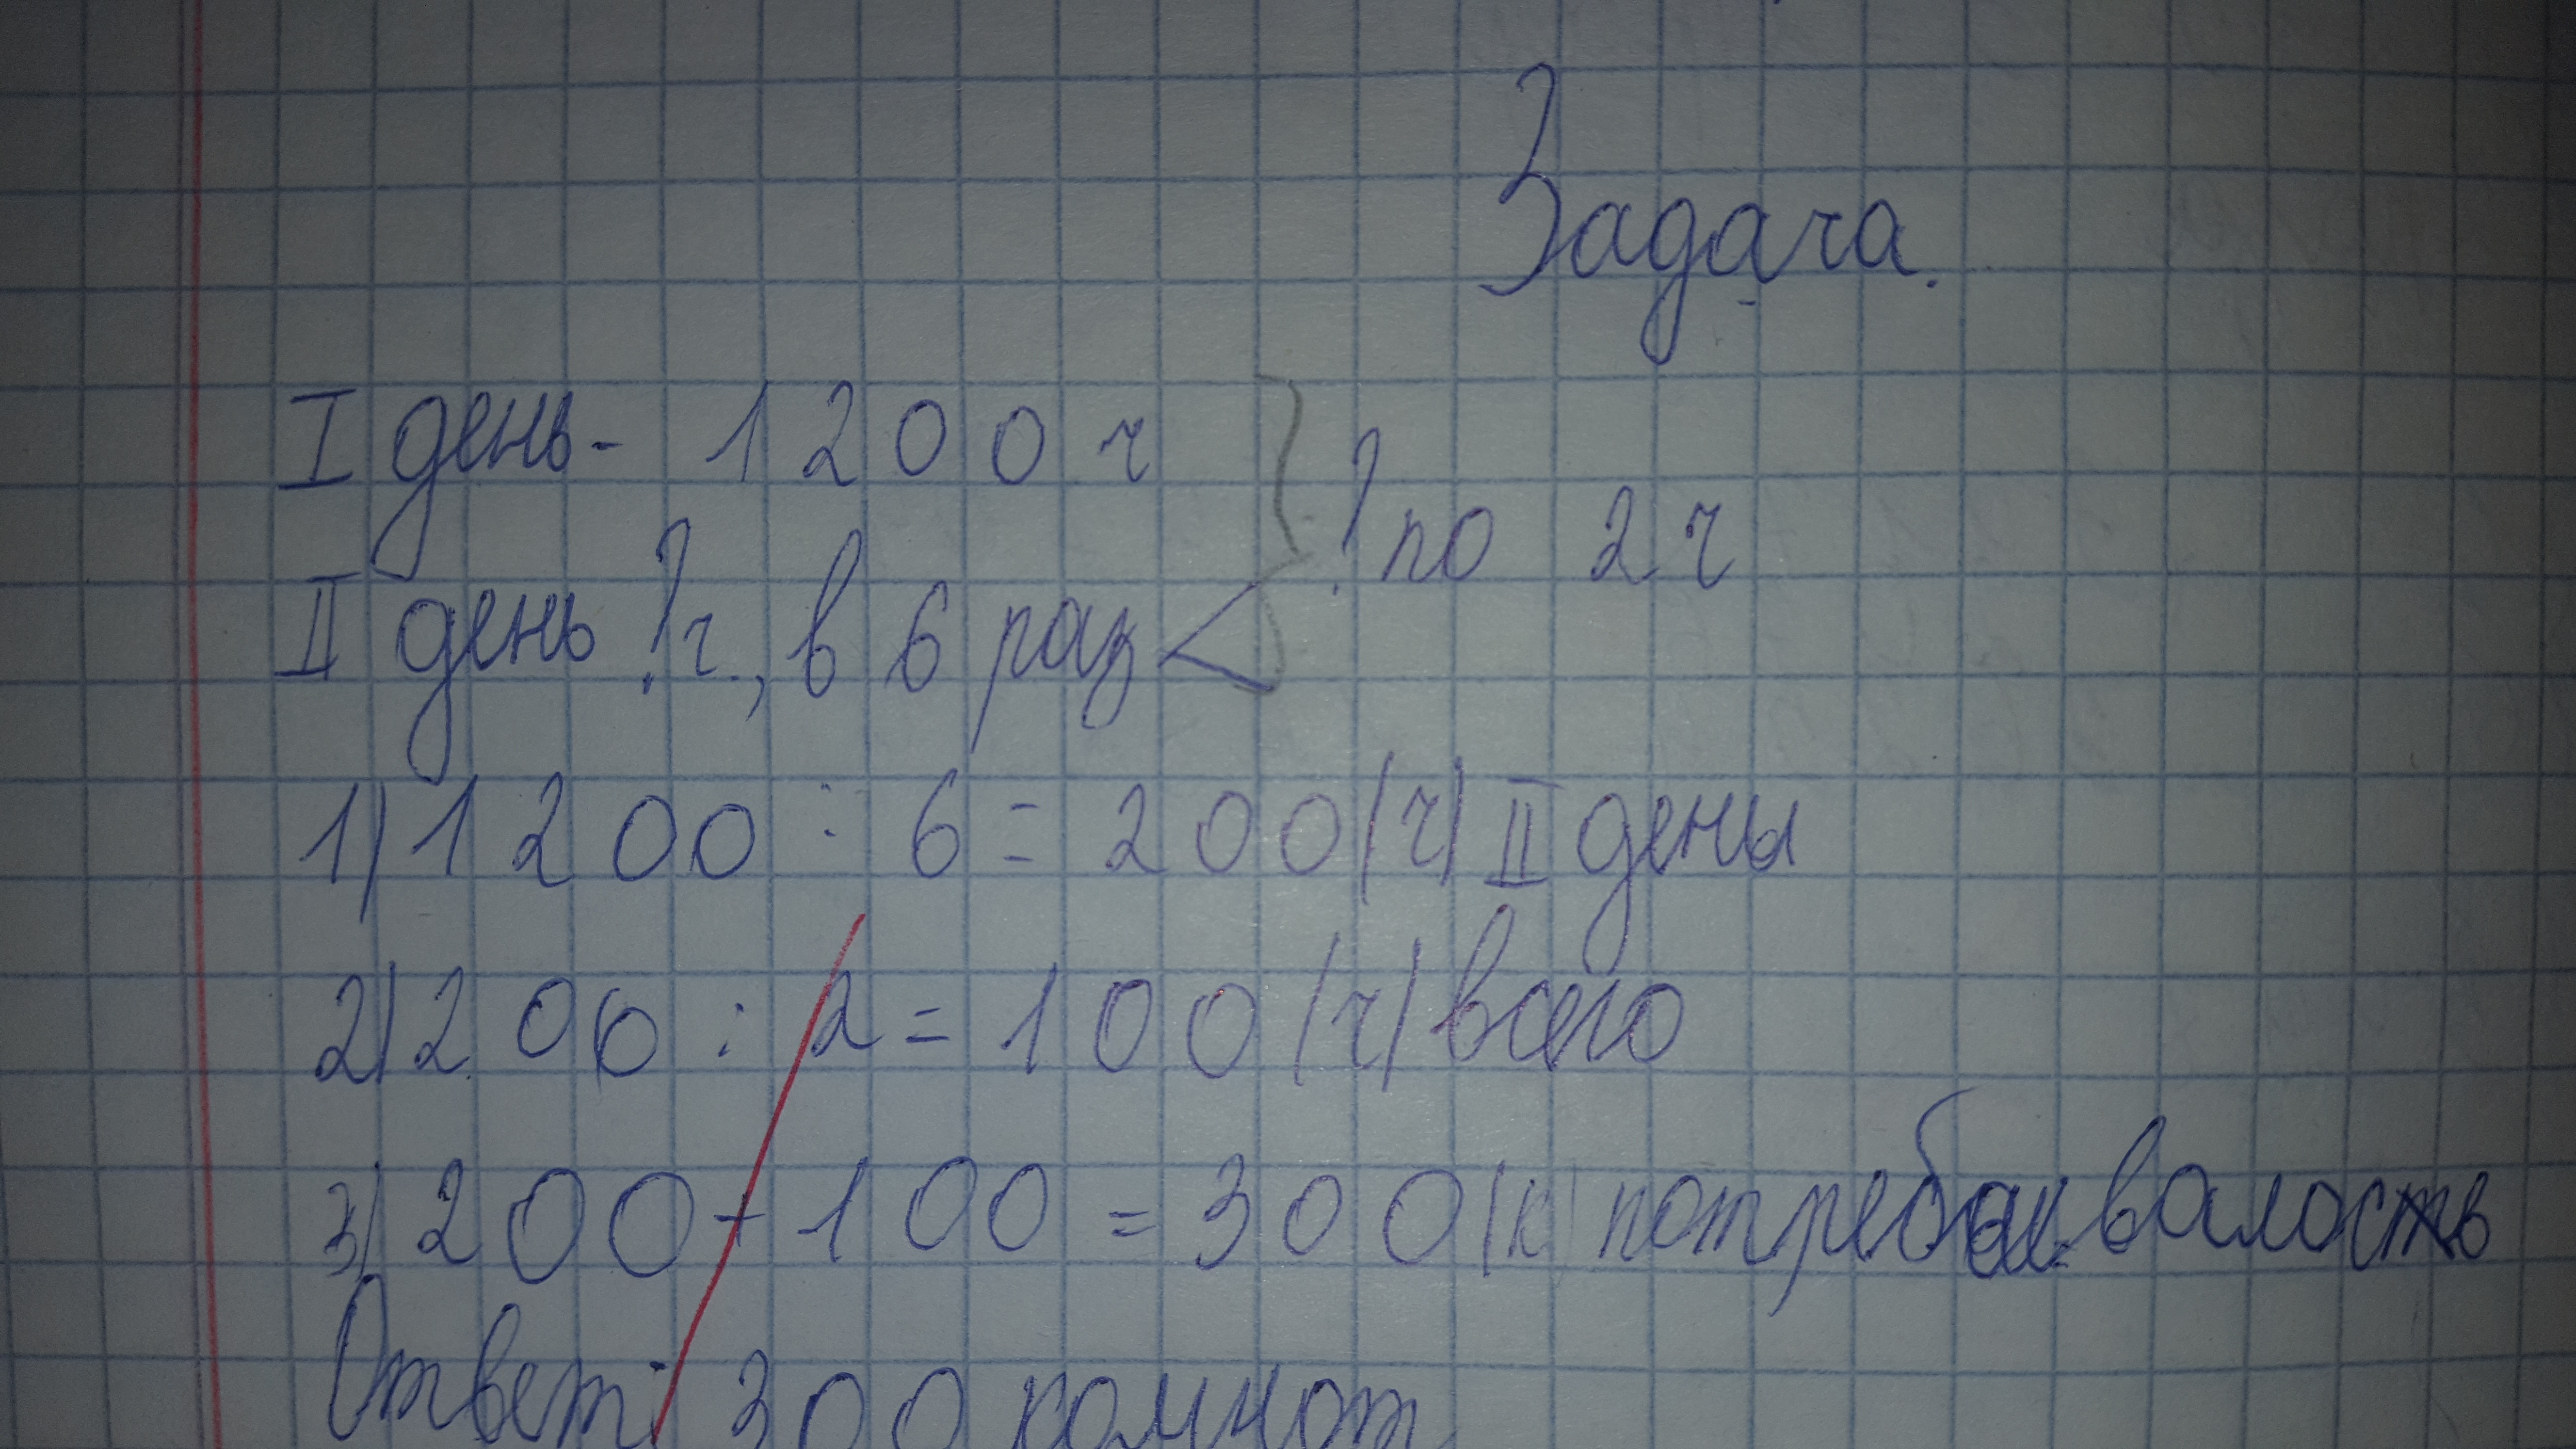 Задача.
I день - 1200 ч
II день ? ч., в 6 раз <
? по 2 ч
1) 1200 : 6 = 200 (ч) II день
2) 200 : 2 = 100 (ч) всего
3) 200 + 100 = 300 (к)
Ответ: 300 комнат